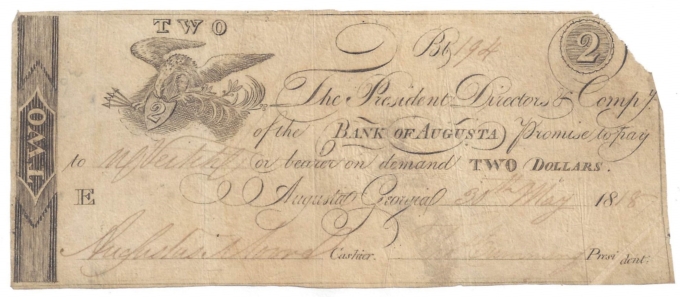 TWO
No 194
2
The President Directors & Compy
of the BANK OF AUGUSTA Promise to pay
2
TWO
to or bearer on demand TWO DOLLARS.
E Augusta Georgia 20th May 1818
Augustus Moore Cashier. President.